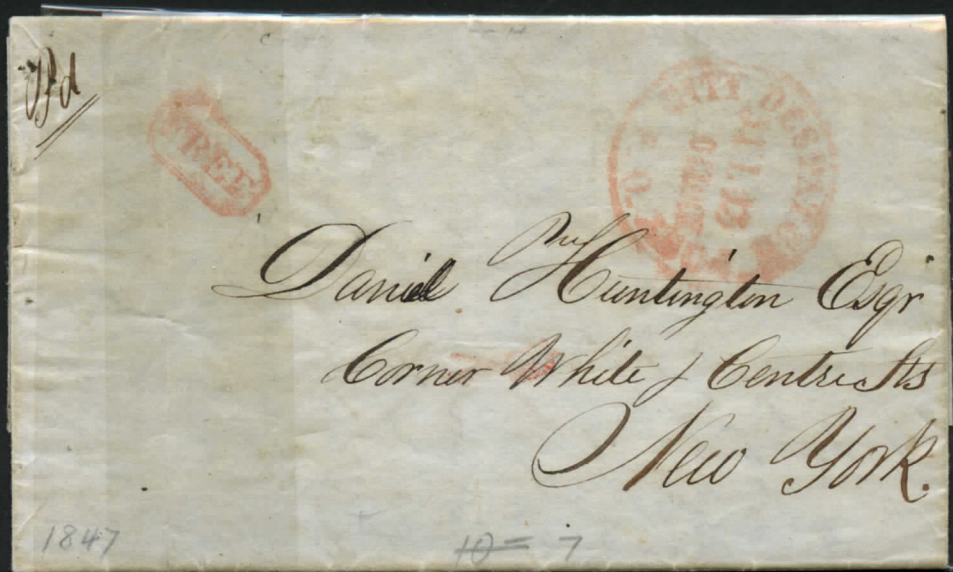 Pd
FREE
CITY DESPATCH
POST
JUL 13
4 O'Clock
Daniel Huntington Esqr
Corner White & Centre Sts
New York.
1847
10 = 7